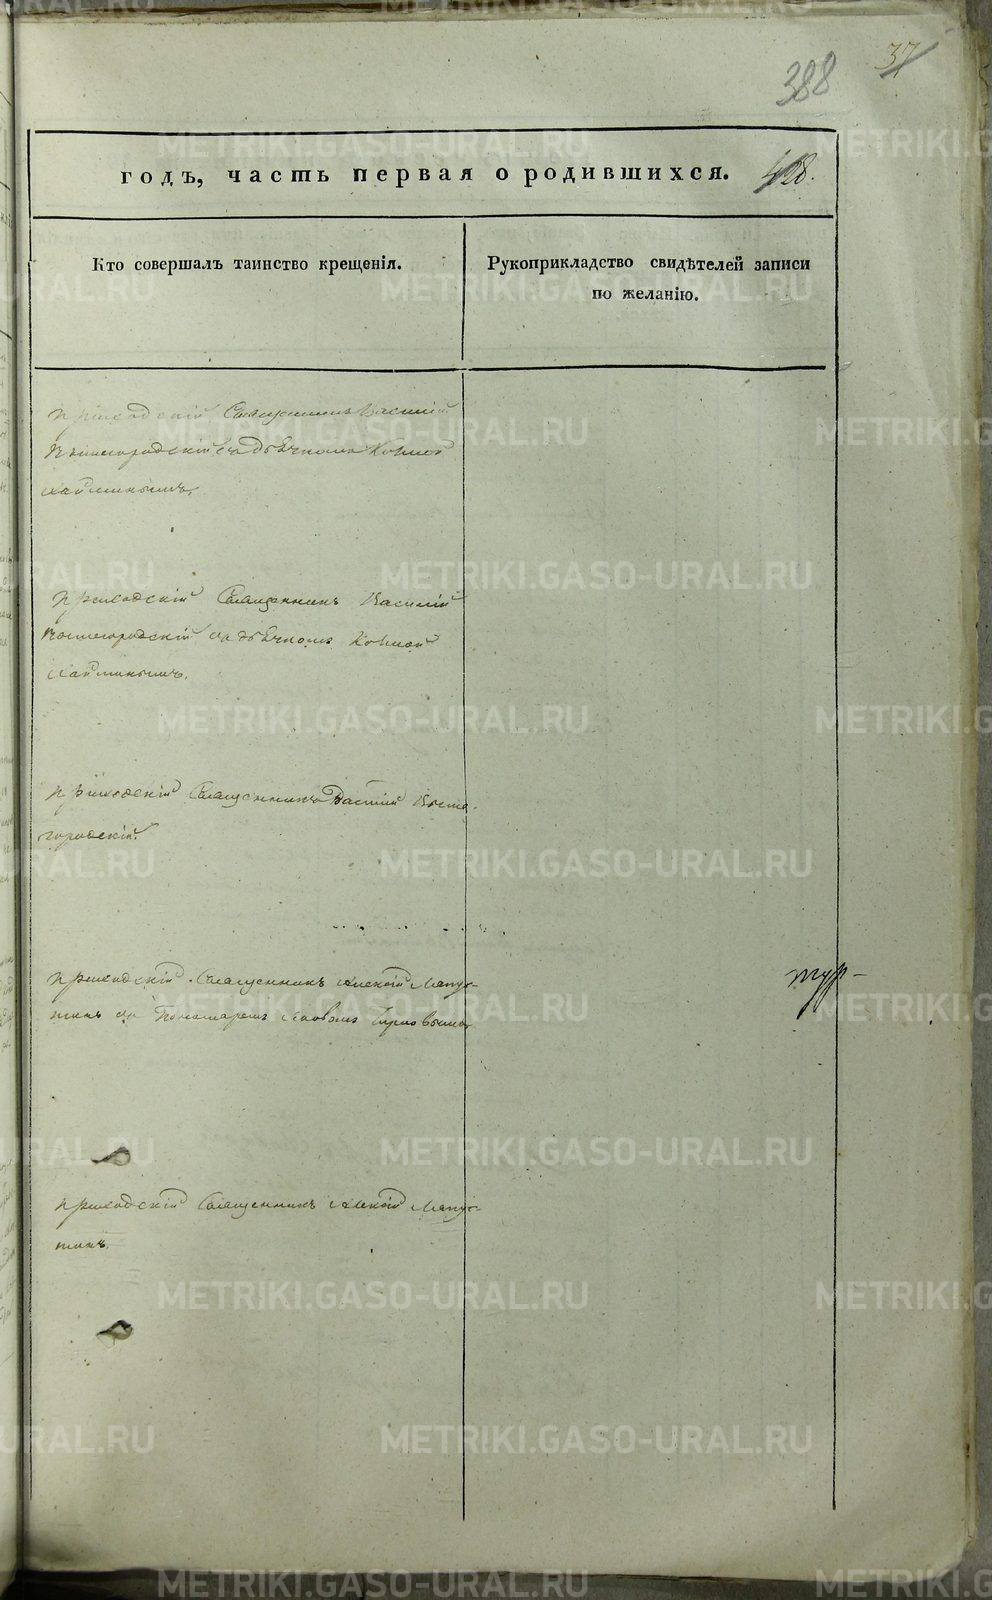 37
388
годъ, часть первая о родившихся.
Кто совершалъ таинство крещенія.
Рукоприкладство свидѣтелей записи
по желанію.
Приходскій Священникъ Василій
Вышегородскій съ дьячкомъ Козмой
Хайминымъ.
Приходскій Священникъ Василій
Вышегородскій съ дьячкомъ Козмой
Хайминымъ.
Приходскій Священникъ Василій Выше-
городскій.
Приходскій Священникъ Алексій
съ Пономаремъ
Приходскій Священникъ Алексій
METRIKI.GASO-URAL.RU